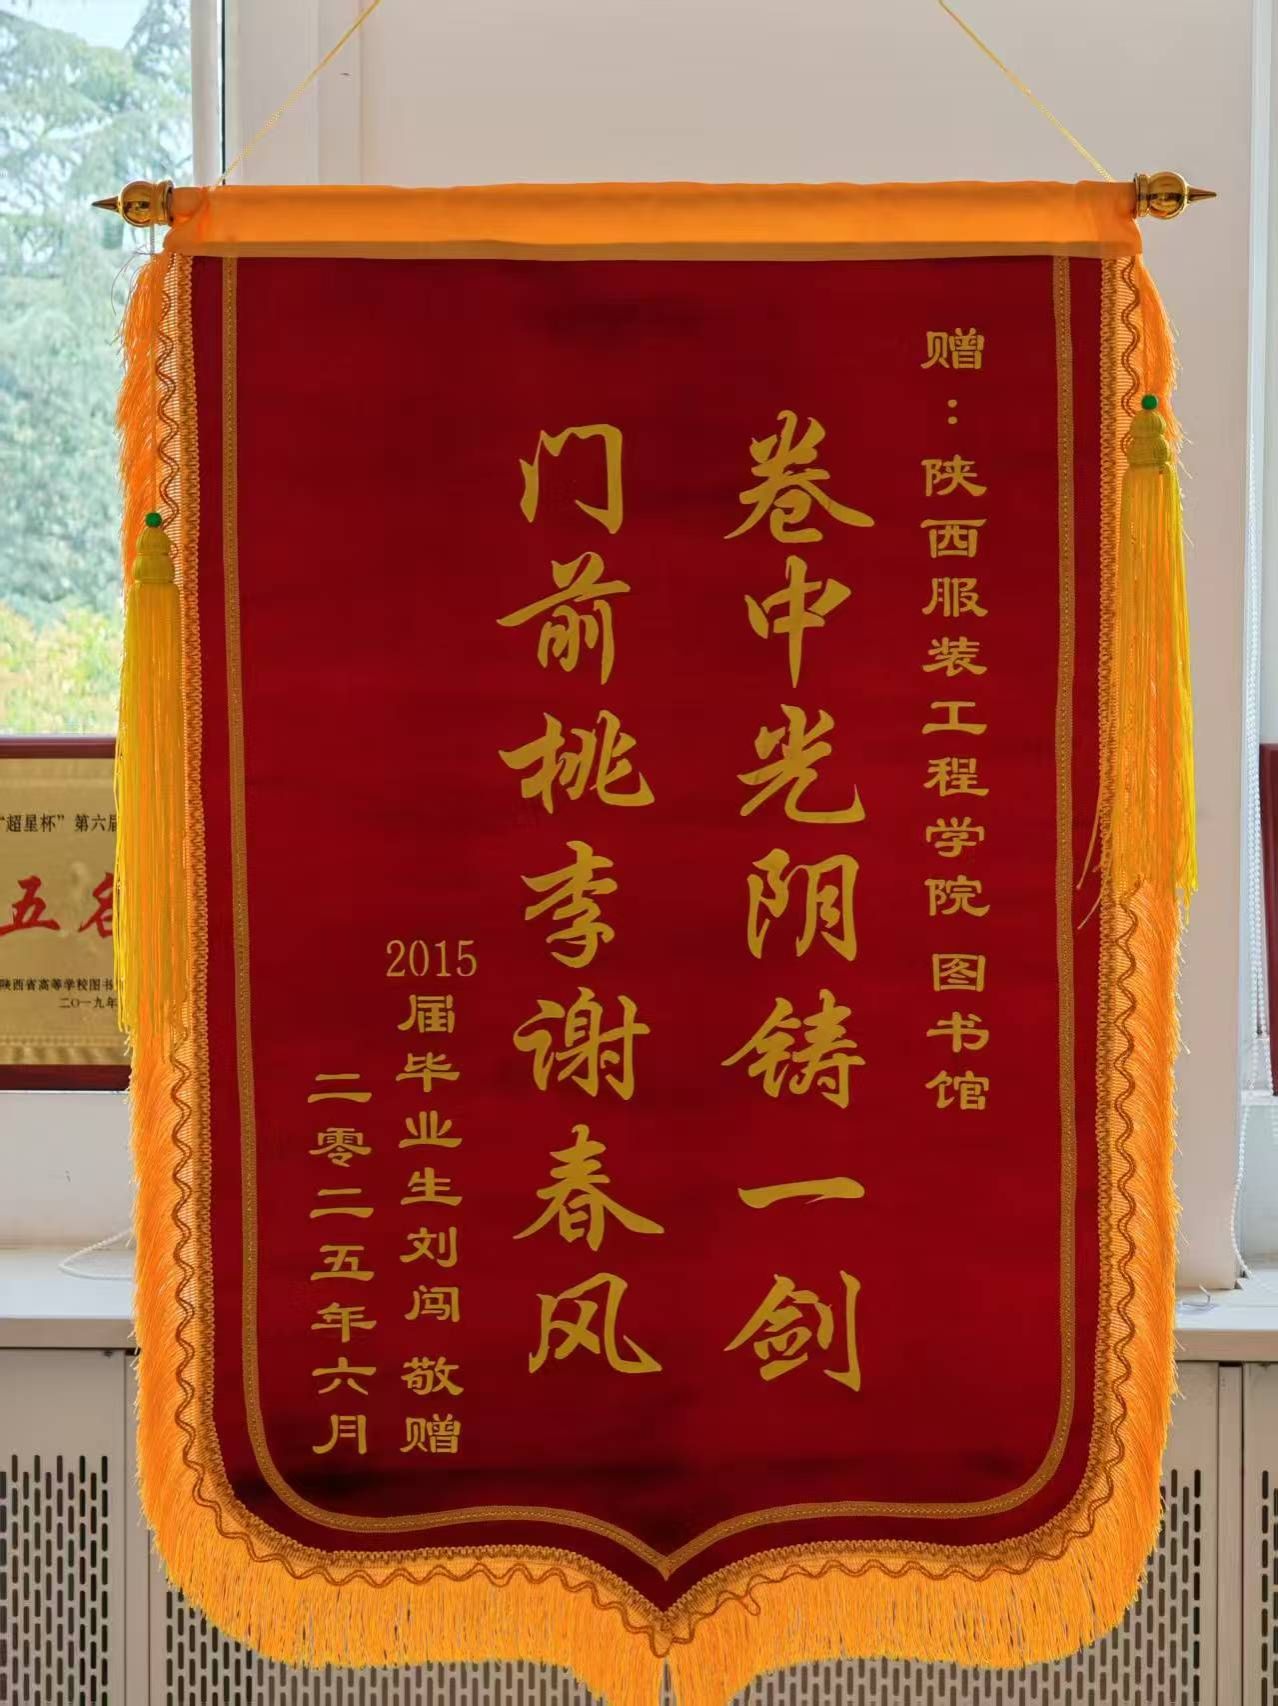 赠：陕西服装工程学院 图书馆
卷中光阴铸一剑
门前桃李谢春风
2015届毕业生刘闯 敬赠
二零二五年六月
"超星杯"第六届
五名
陕西省高等学校图书
二〇一九年